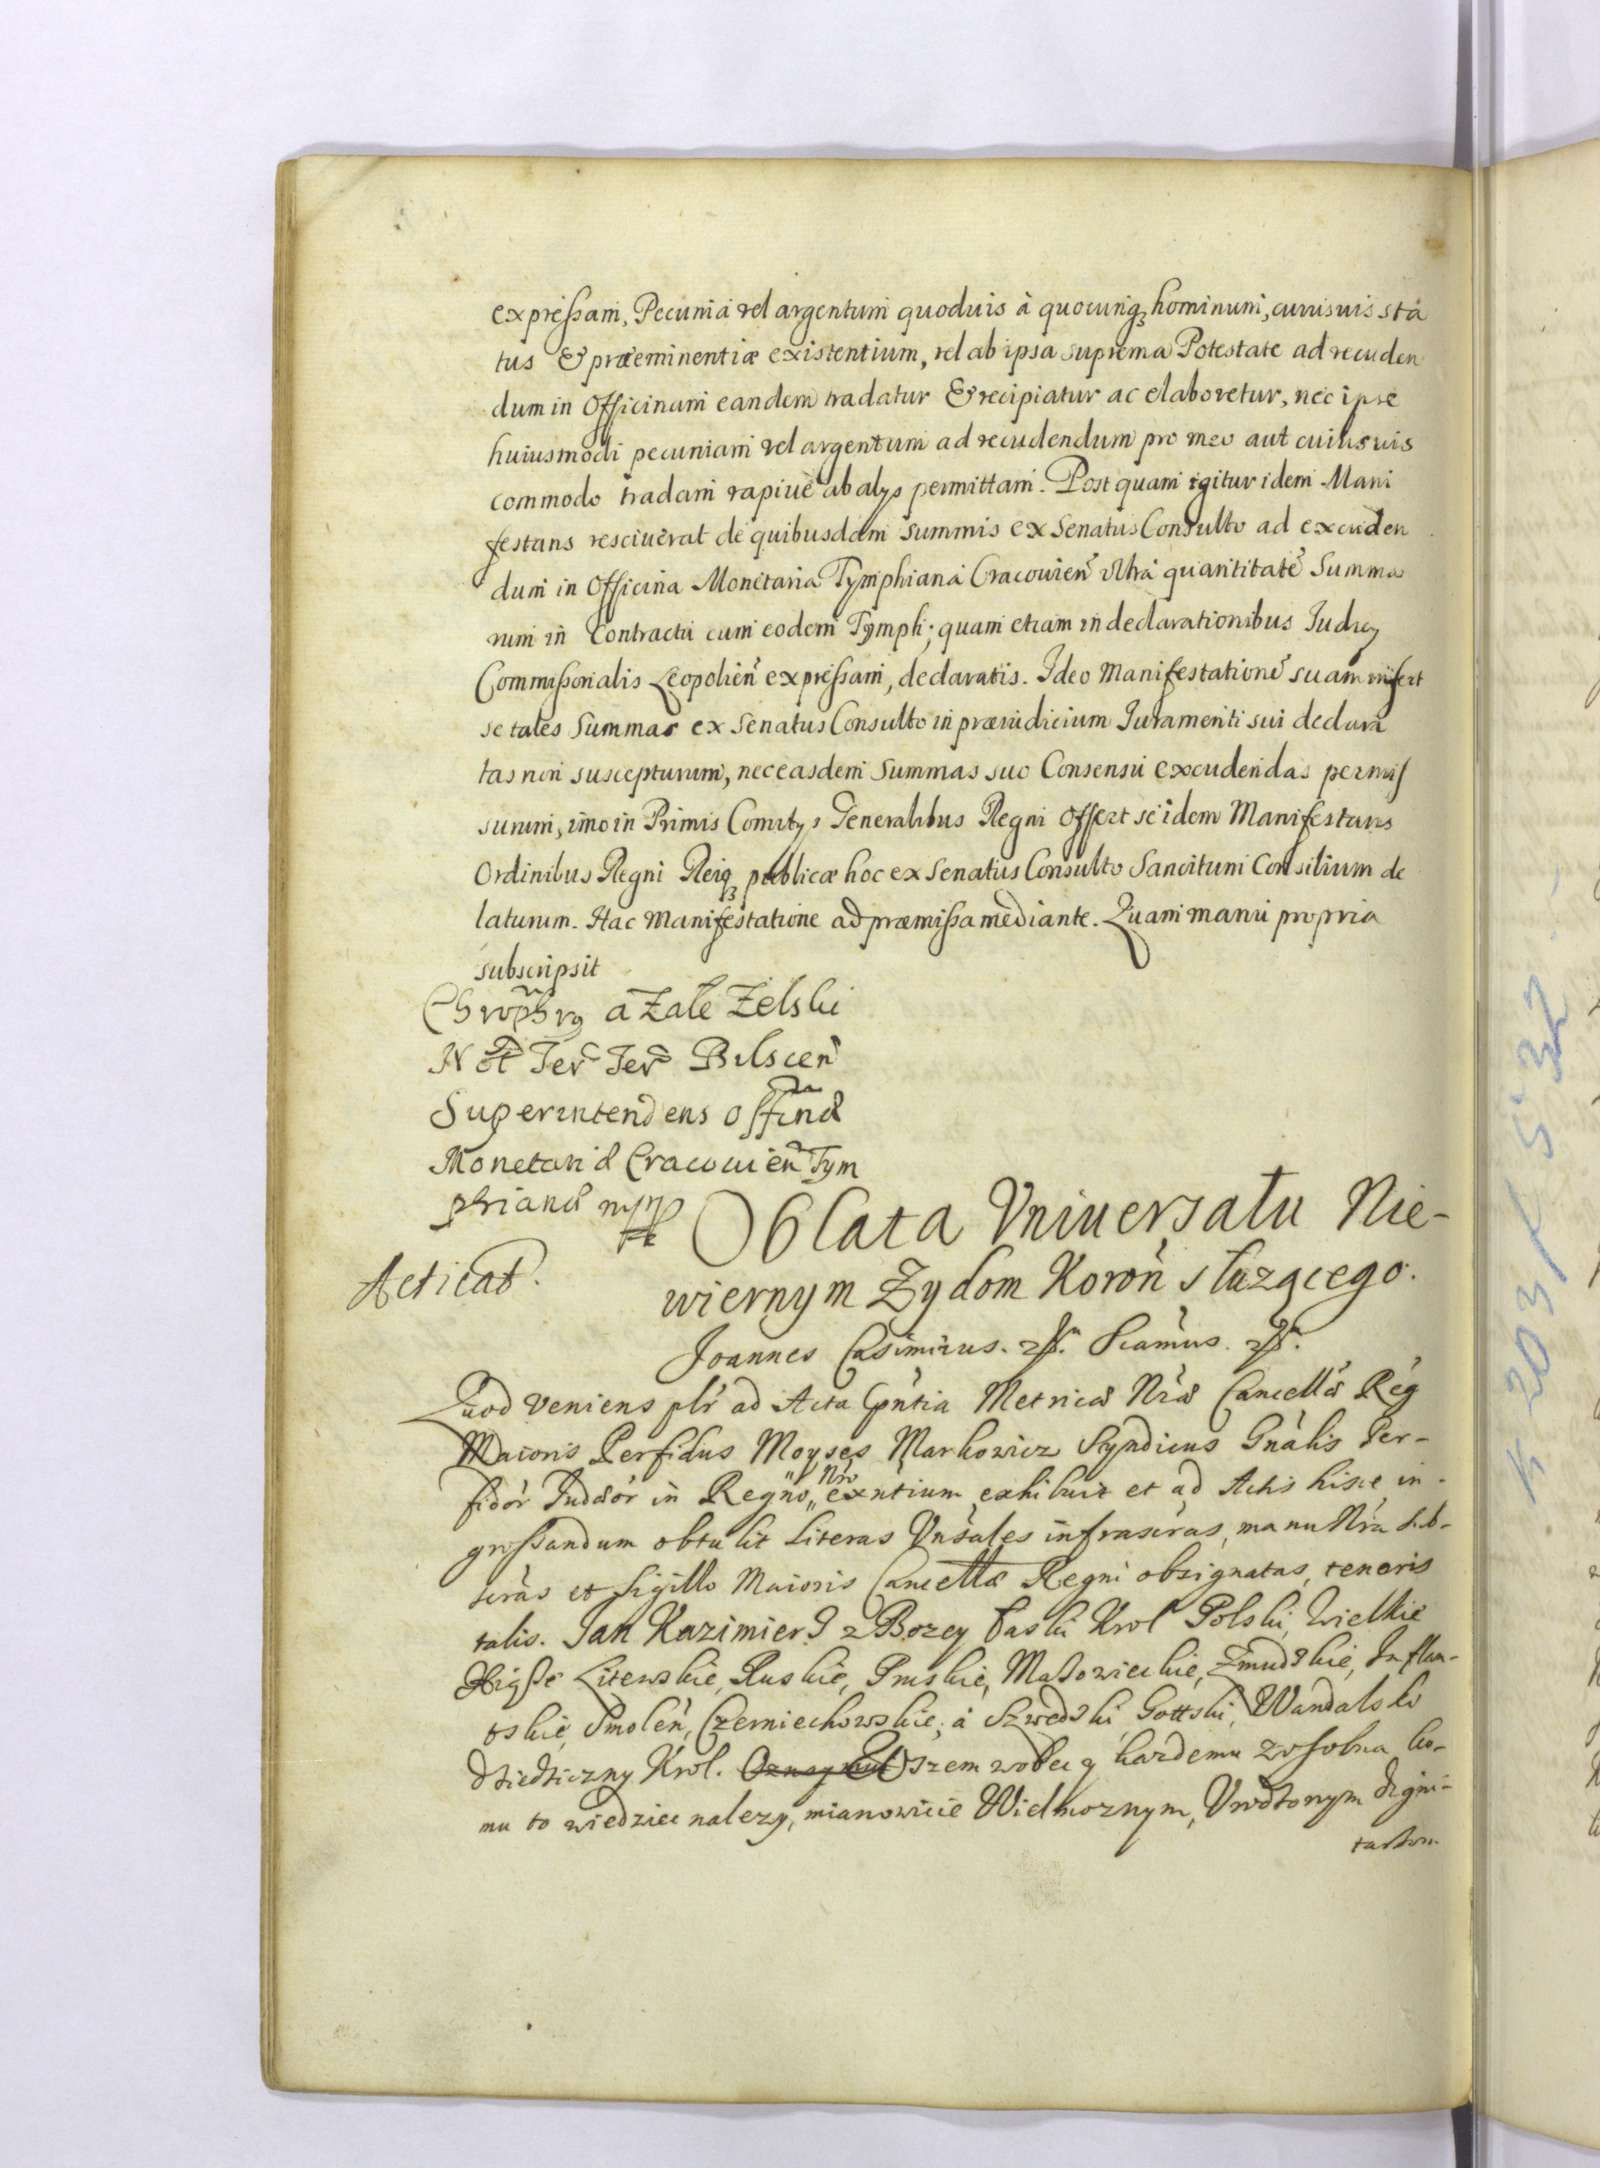 expressam, Pecunia vel argentum quoduis à quocunq hominum, cuiusuis sta
tus & præeminentiæ existentium, vel ab ipsa suprema Potestate ad recuden
dum in Officinam eandem tradatur & recipiatur ac elaboretur, nec ipse
huiusmodi pecuniam vel argentum ad recudendum pro meo aut cuiusuis
commodo tradam rapiue ab alys permittam. Post quam igitur idem Mani
festans resciuerat de quibusdam summis ex Senatus Consulto ad excuden
dum in Officina Monetaria Tymphiana Cracouien ultra quantitate Summa
rum in Contractu cum eodem Tymph; quam etiam in declarationibus Judicy
Commissorialis Leopolien expressam, declaratis. Ideo Manifestatione suam infert
se tales Summas ex Senatus Consulto in præiudicium Juramenti sui declara
tas non suscepturum, nec easdem Summas suo Consensu excudendas permis
surum, imo in Primis Comitys Generalibus Regni offert se idem Manifestans
Ordinibus Regni Reiq publicæ hoc ex Senatus Consulto Sancitum Consilium de
laturum. Hac Manifestatione ad præmissa mediante. Quam manu propria
subscripsit
Chrophrg a Zale Zelski
Not Ter Ter Bilscen
Superintendens offinæ
Monetariæ Cracouien Tym
phianæ mpp
Oblata Vniuersału Nie-
wiernym Zydom Koron służącego.
Acticat.
Joannes Casimirus. Scamus.
Quod veniens plr ad Acta pntia Metricæ Nræ Cancellæ Reg
Maioris Perfidus Moyses Markowicz Syndicus Gnalis Per-
fidor Judæor in Regno Nro exntium exhibuit et ad Actis hisce in-
grossandum obtulit Literas Vnsales infrascras, manu Nra sub-
scras et Sigillo Maioris Cancellæ Regni obsignatas, tenoris
talis. Jan Kazimierz z Bozey Łaski Krol Polski, Wielkie
Xiąze Litewskie, Ruskie, Pruskie, Mazowieckie, Zmudzkie, Inflan-
tskie, Smolen, Czerniechowskie; á Szwedzki, Gottski, Wandalski
dziedziczny Krol. Wszem wobec y kazdemu zosobna ko-
mu to wiedziec nalezy, mianowicie Wielmoznym, Vrodzonym digni-
tarzom
K 203 / S 32